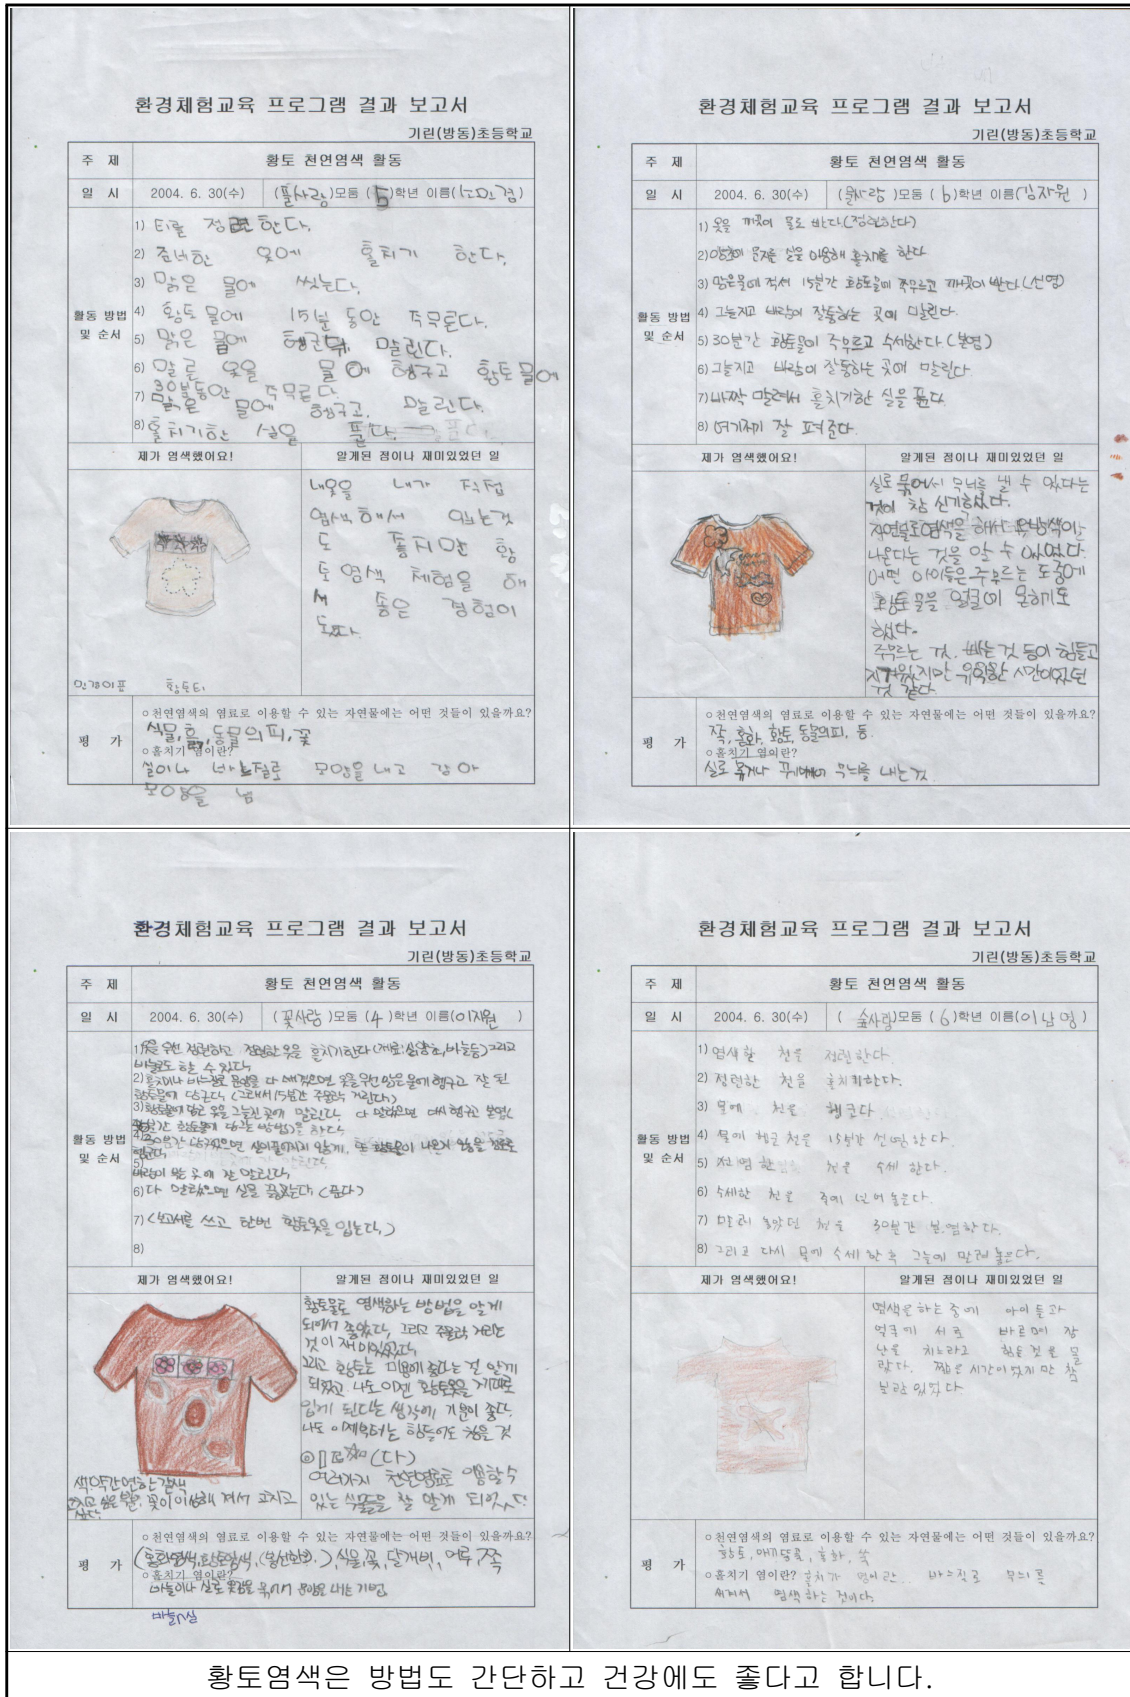 환경체험교육 프로그램 결과 보고서
기린(방동)초등학교
주 제
황토 천연염색 활동
일 시
2004. 6. 30(수)
(풀사랑)모둠 (5)학년 이름(
활동 방법
및 순서
1) 티를 정련한다.
2) 준비한 옷에 홀치기 한다.
3) 맑은 물에 씻는다.
4) 황토물에 15분 동안 주무른다.
5) 맑은 물에 헹군뒤, 말린다.
6) 말른 옷을 물에 헹구고 황토물에
30분동안 주무른다.
7) 맑은 물에 헹구고, 말린다.
8) 홀치기한 실을 푼다.
제가 염색했어요!
알게된 점이나 재미있었던 일
내옷을 내가 직접
염색해서 입는것
도 좋지만 황
토염색 체험을 해
서 좋은 경험이
됬다.
황토티
평 가
○천연염색의 염료로 이용할 수 있는 자연물에는 어떤 것들이 있을까요?
식물, 흙, 동물의피, 꽃
○홀치기 염이란?
실이나 바느질로 모양을 내고 감아
모양을 냄
환경체험교육 프로그램 결과 보고서
기린(방동)초등학교
주 제
황토 천연염색 활동
일 시
2004. 6. 30(수)
(물사랑 )모둠 (6)학년 이름(김자원 )
활동 방법
및 순서
1) 옷을 깨끗이 물로 빤다(정련한다)
2) 문지를 실을 이용해 홀치기를 한다
3) 맑은물에 적셔 15분간 황토물에 주무르고 깨끗이 빤다(선염)
4) 그늘지고 바람이 잘통하는 곳에 말린다.
5) 30분간 황토물에 주무르고 수세한다.(본염)
6) 그늘지고 바람이 잘통하는 곳에 말린다
7) 바짝 말려서 홀치기한 실을 푼다.
8) 여기저기 잘 펴준다.
제가 염색했어요!
알게된 점이나 재미있었던 일
실로 묶어서 무늬를 낼 수 있다는
것이 참 신기하였다.
자연물로염색을 해서
나온다는 것을 알 수 있었다.
어떤 아이들은 주무르는 도중에
황토물을 얼굴에 문히기도
했다.
주무르는 것, 빠는것 등이 힘들고
지겨웠지만 유익한 시간이었던
것 같다
평 가
○천연염색의 염료로 이용할 수 있는 자연물에는 어떤 것들이 있을까요?
쪽, 홍화, 황토, 동물의피, 등.
○홀치기 염이란?
실로 묶거나 꿰매어 무늬를 내는것.
환경체험교육 프로그램 결과 보고서
기린(방동)초등학교
주 제
황토 천연염색 활동
일 시
2004. 6. 30(수)
(꽃사랑 )모둠 (4)학년 이름(이지원 )
활동 방법
및 순서
1) 옷을 우선 정련하고 정련한 옷을 홀치기한다 그리고
바늘로도 할 수 있다
2) 홀치기나 바느질로 문양을 다 옷을 우선 맑은 물에 헹구고 잘 된
황토물에 담근다. (그래서 15분간 주물럭 거린다)
3) 황토물에 담근 옷을 그늘진 곳에 말린다. 다 말랐으면 다시 헹구고 본염(
황토물에 담그는 방법)을 한다.
4)
5) 바람이 부는 곳에 잘 말린다.
6) 다 말랐으면 실을 푼다 (푼다)
7) (보고서를 쓰고 한번 황토옷을 입는다.)
8)
제가 염색했어요!
알게된 점이나 재미있었던 일
황토물로 염색하는 방법을 알게
되어서 좋았다, 그리고 주물럭 거리는
것이 재미있었다
그리고 황토는 미용에 좋다는 걸 알게
되었고 나도 이젠 황토옷을
입게 된다는 생각에 기분이 좋다.
나도 이제부터는 힘들어도 참을 것
(다)
여러가지 천연염료로 이용할수
있는 식물들을 잘 알게 되었다.
색 약간 연하는 갈색
고치고 싶은 부분: 꽃이 이상해 져서 고치고
싶다.
평 가
○천연염색의 염료로 이용할 수 있는 자연물에는 어떤 것들이 있을까요?
(홍화염색, 황토염색, ) 식물, 꽃, 달개비, 머루, 쪽
○홀치기 염이란?
바늘이나 실로 옷감을 묶어서 문양을 내는 기법.
바늘
환경체험교육 프로그램 결과 보고서
기린(방동)초등학교
주 제
황토 천연염색 활동
일 시
2004. 6. 30(수)
( 숲사랑)모둠 (6)학년 이름(이남명 )
활동 방법
및 순서
1) 염색할 천을 정련한다.
2) 정련한 천을 홀치기한다.
3) 물에 천을 헹군다
4) 물에 헹군 천을 15분간 선염한다.
5) 선염한 천을 수세 한다.
6) 수세한 천을 줄에 널어 놓는다.
7) 말려 놓았던 천을 30분간 본염한다.
8) 그리고 다시 물에 수세 한 후 그늘에 말려 놓는다.
제가 염색했어요!
알게된 점이나 재미있었던 일
염색을 하는 중에 아이들과
얼굴에 서로 바르며 장
난을 치느라고 힘든 것을 몰
랐다. 짧은 시간이었지만 참
보람 있었다
평 가
○천연염색의 염료로 이용할 수 있는 자연물에는 어떤 것들이 있을까요?
황토, 애기똥풀, 홍화, 쑥
○홀치기 염이란? 홀치기 염이란... 바느질로 무늬를
새겨서 염색하는 것이다.
황토염색은 방법도 간단하고 건강에도 좋다고 합니다.